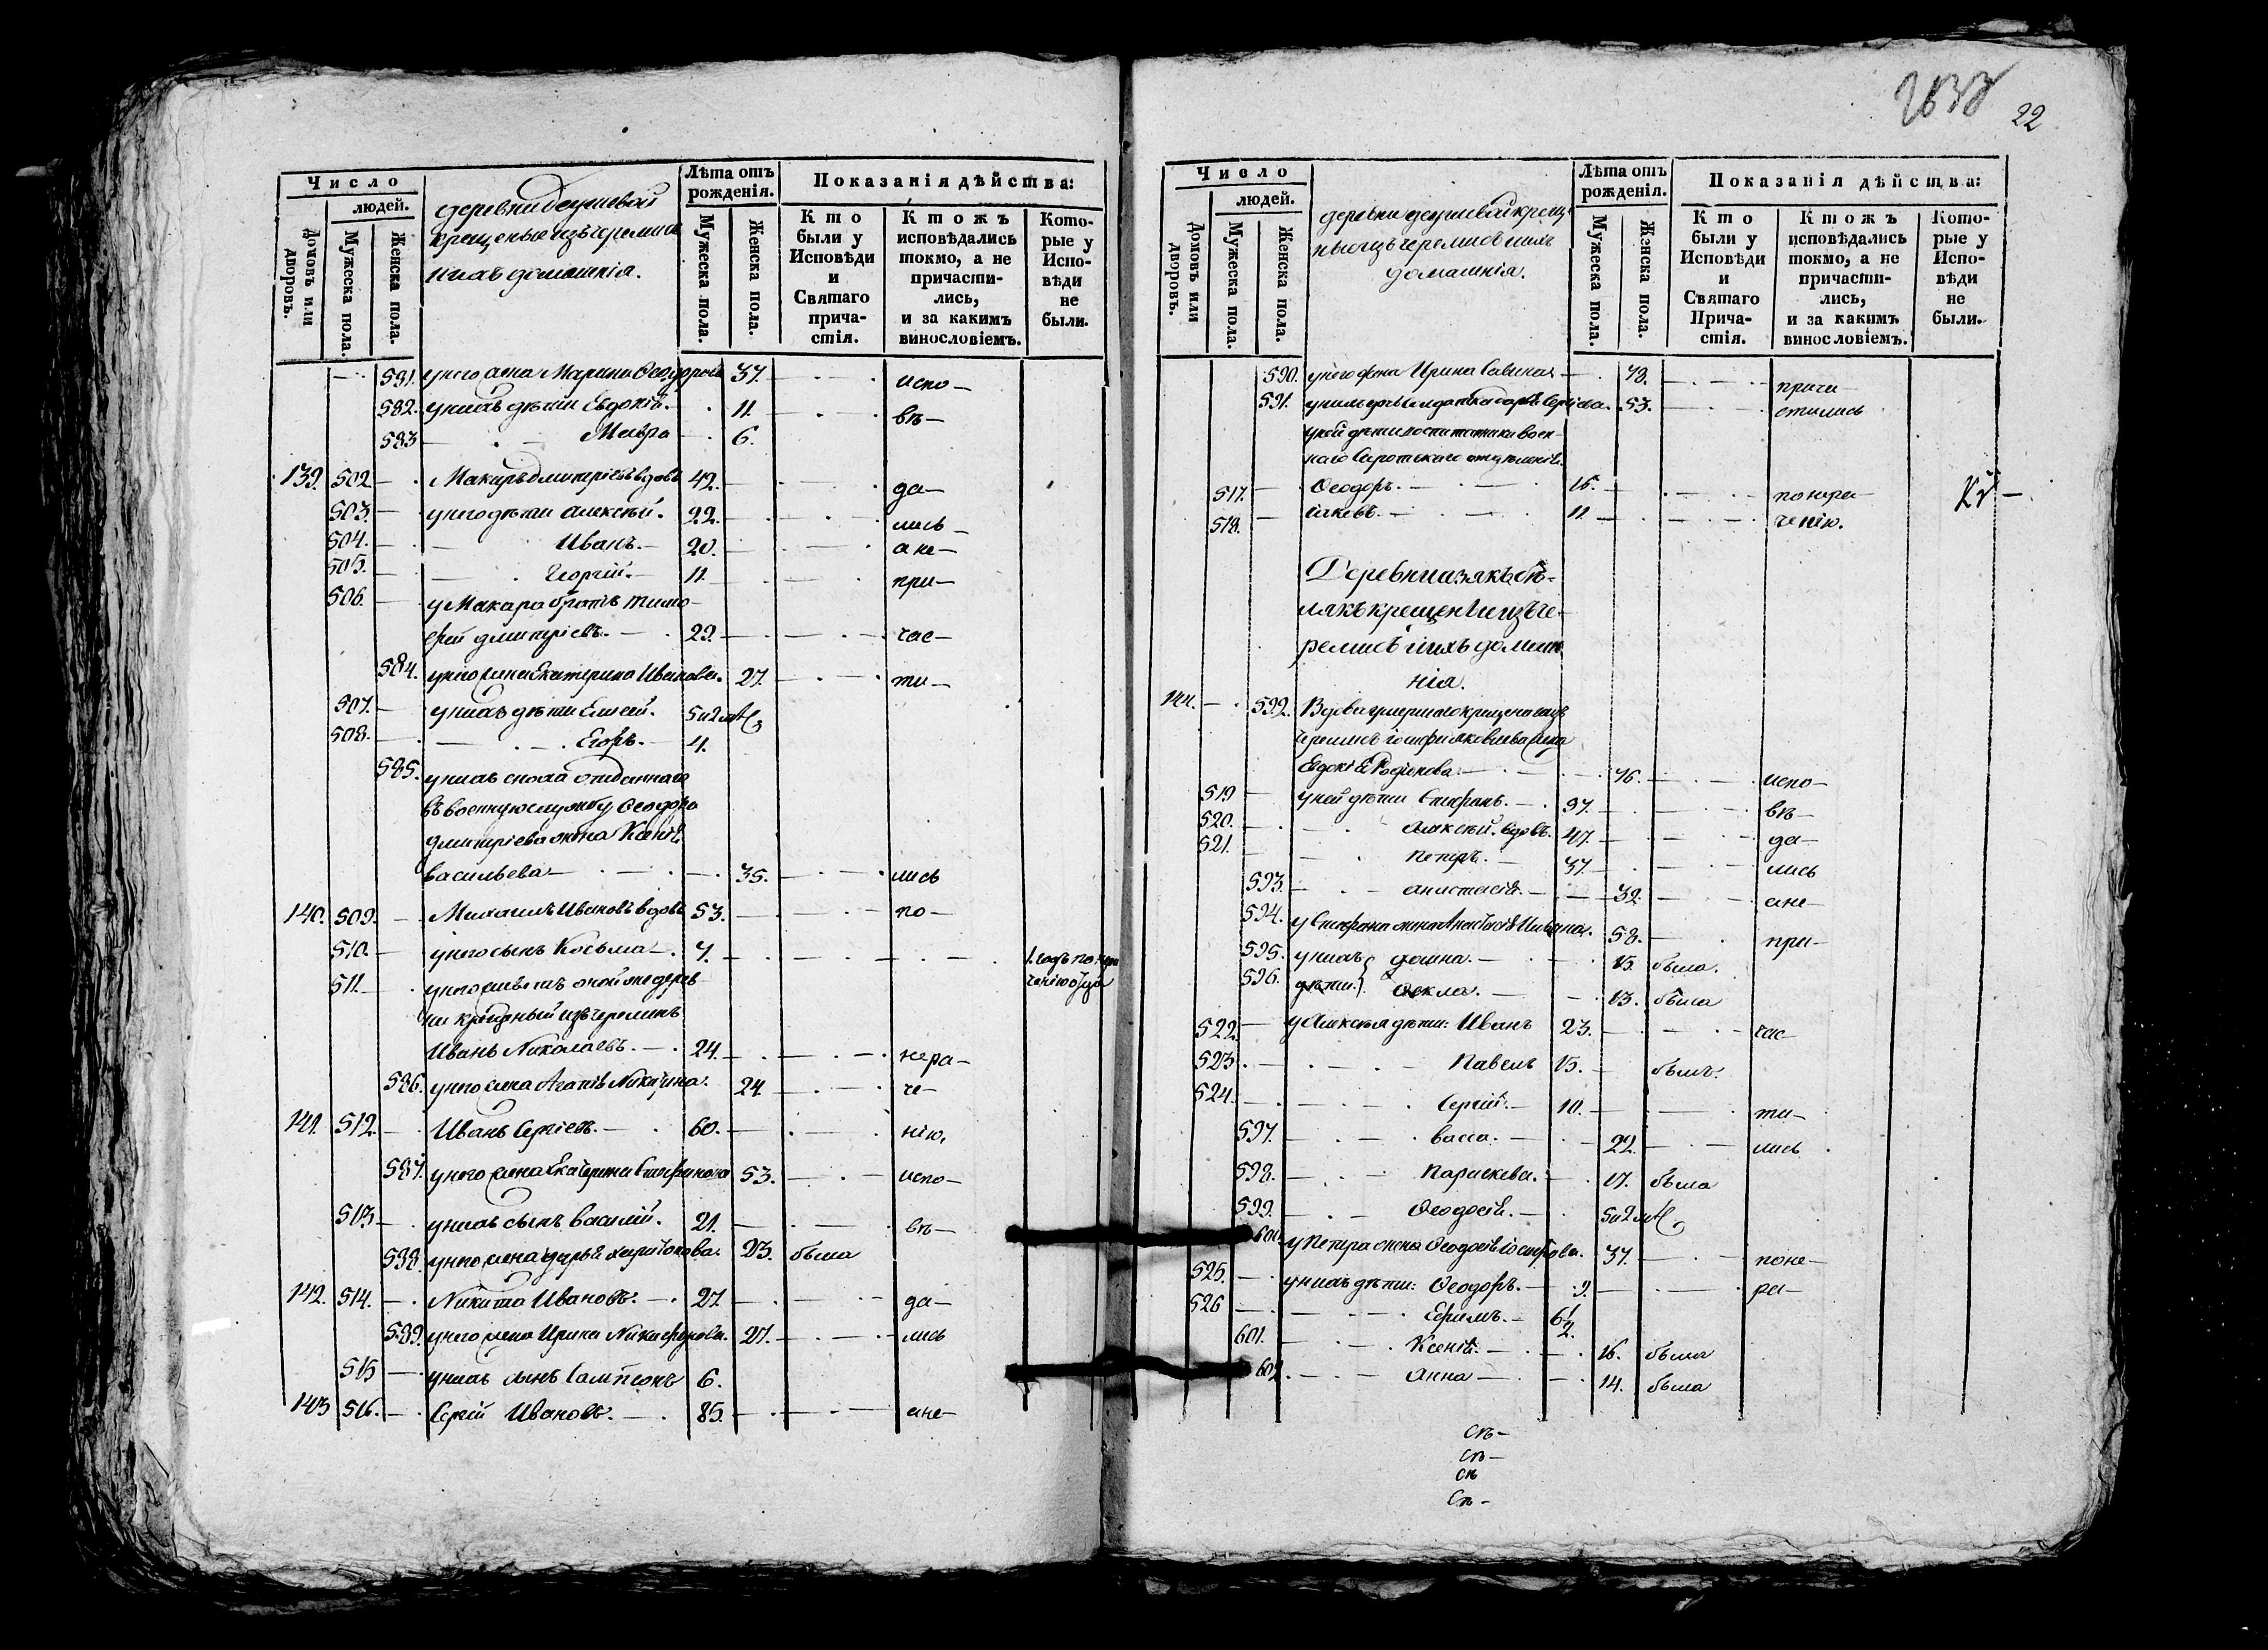 Число
людей.
Домовъ или дворовъ.
Мужеска пола.
Женска пола.
деревни
крещеные изъ черемисъ
ихъ домашнія.
Лѣта отъ рожденія.
Мужеска пола.
Женска пола.
Показанія дѣйства:
Кто были у Исповѣди и Святаго причастія.
Ктожъ исповѣдались токмо, а не причастились, и за какимъ винословіемъ.
Которые у Исповѣди не были.
581. у него жена Марина Ѳеодорова 37. испо-
582. у нихъ дѣти Евдокія. 11. вѣ-
583 Мавра 6.
139. 502 Макаръ Дмитріевъ вдовъ 42. да-
503. у него дѣти Алексѣй. 22. лись
504. Иванъ. 20. а не-
505. Георгій. 11. при-
506. у Макара братъ Тимо-
фей Дмитріевъ. 29. час-
584. у него жена Екатерина Иванова. 27. ти-
507. у нихъ дѣти Елисей. 5 и 2 мц
508. Егоръ. 4.
585. у нихъ сноха отданнаго
въ военную службу Ѳеодора
Дмитріева жена Ксенія
Васильева 35. лись
140. 509. Михаилъ Ивановъ вдовъ 53. по-
510. у него сынъ Косьма 7. 1. годъ по нера
511. у него живетъ оной же дерев- ченію отца
ни крещеный изъ черемисъ
Иванъ Николаевъ. 24. нера-
586. у него жена Агапія Никитина. 24 че-
141. 512. Иванъ Сергіевъ. 60. нію.
587. у него жена Екатерина Стефанова 53. испо-
513 у нихъ сынъ Василій. 21. вѣ-
588. у него жена Дарья Харитонова. 23. была
142. 514. Никита Ивановъ. 27. да-
589. у него жена Ирина Никифорова. 27. лись
515 у нихъ сынъ Сампсонъ 6.
143 516. Сергій Ивановъ. 85. а не-
22
Число
людей.
Домовъ или дворовъ.
Мужеска пола.
Женска пола.
деревни крещ-
ные изъ черемисъ и ихъ
домашнія.
Лѣта отъ рожденія.
Мужеска пола.
Женска пола.
Показанія дѣйства:
Кто были у Исповѣди и Святаго Причастія.
Ктожъ исповѣдались токмо, а не причастились, и за какимъ винословіемъ.
Которые у Исповѣди не были.
590. у него жена Ирина Савина 78. прича-
591. солдатка Сергіева. 53. стились
у ней дѣти воспитанники воен-
наго Сиротскаго отдѣленія.
517. Ѳеодоръ. 15. по нера-
518. Іаковъ. 11. ченію.
Деревни
крещеніи изъ че-
ремисъ и ихъ домаш
нія.
144. 592. Вдова умершаго крещенаго изъ
черемисъ Іосифа Яковлева жена
Евдокія Родіонова 76. испо-
519 у ней дѣти Стефанъ. 57. вѣ-
520. Алексѣй. вдовъ. 47. да-
521. Петръ. 37. лись
593. Анастасія. 32. а не-
594. у Стефана жена Анастасія 58. при-
595. у нихъ 15. была.
596. дѣти Ѳекла. 13. была
522 у Алексѣя дѣти: Иванъ 23. час-
523. Павелъ 15. былъ.
524. Сергій. 10. ти-
597. Васса. 22. лись
598. Параскева. 17. была
599. Ѳеодосія. 5 и 2 мц
600. у Петра жена Ѳеодосія Іосифова. 37. по не-
525. у нихъ дѣти: Ѳеодоръ. 9. ра-
526 Ефимъ. 6 1/2.
601. Ксенія. 16. была
602. Анна 14. была
Съ-
Съ-
Съ
Съ-